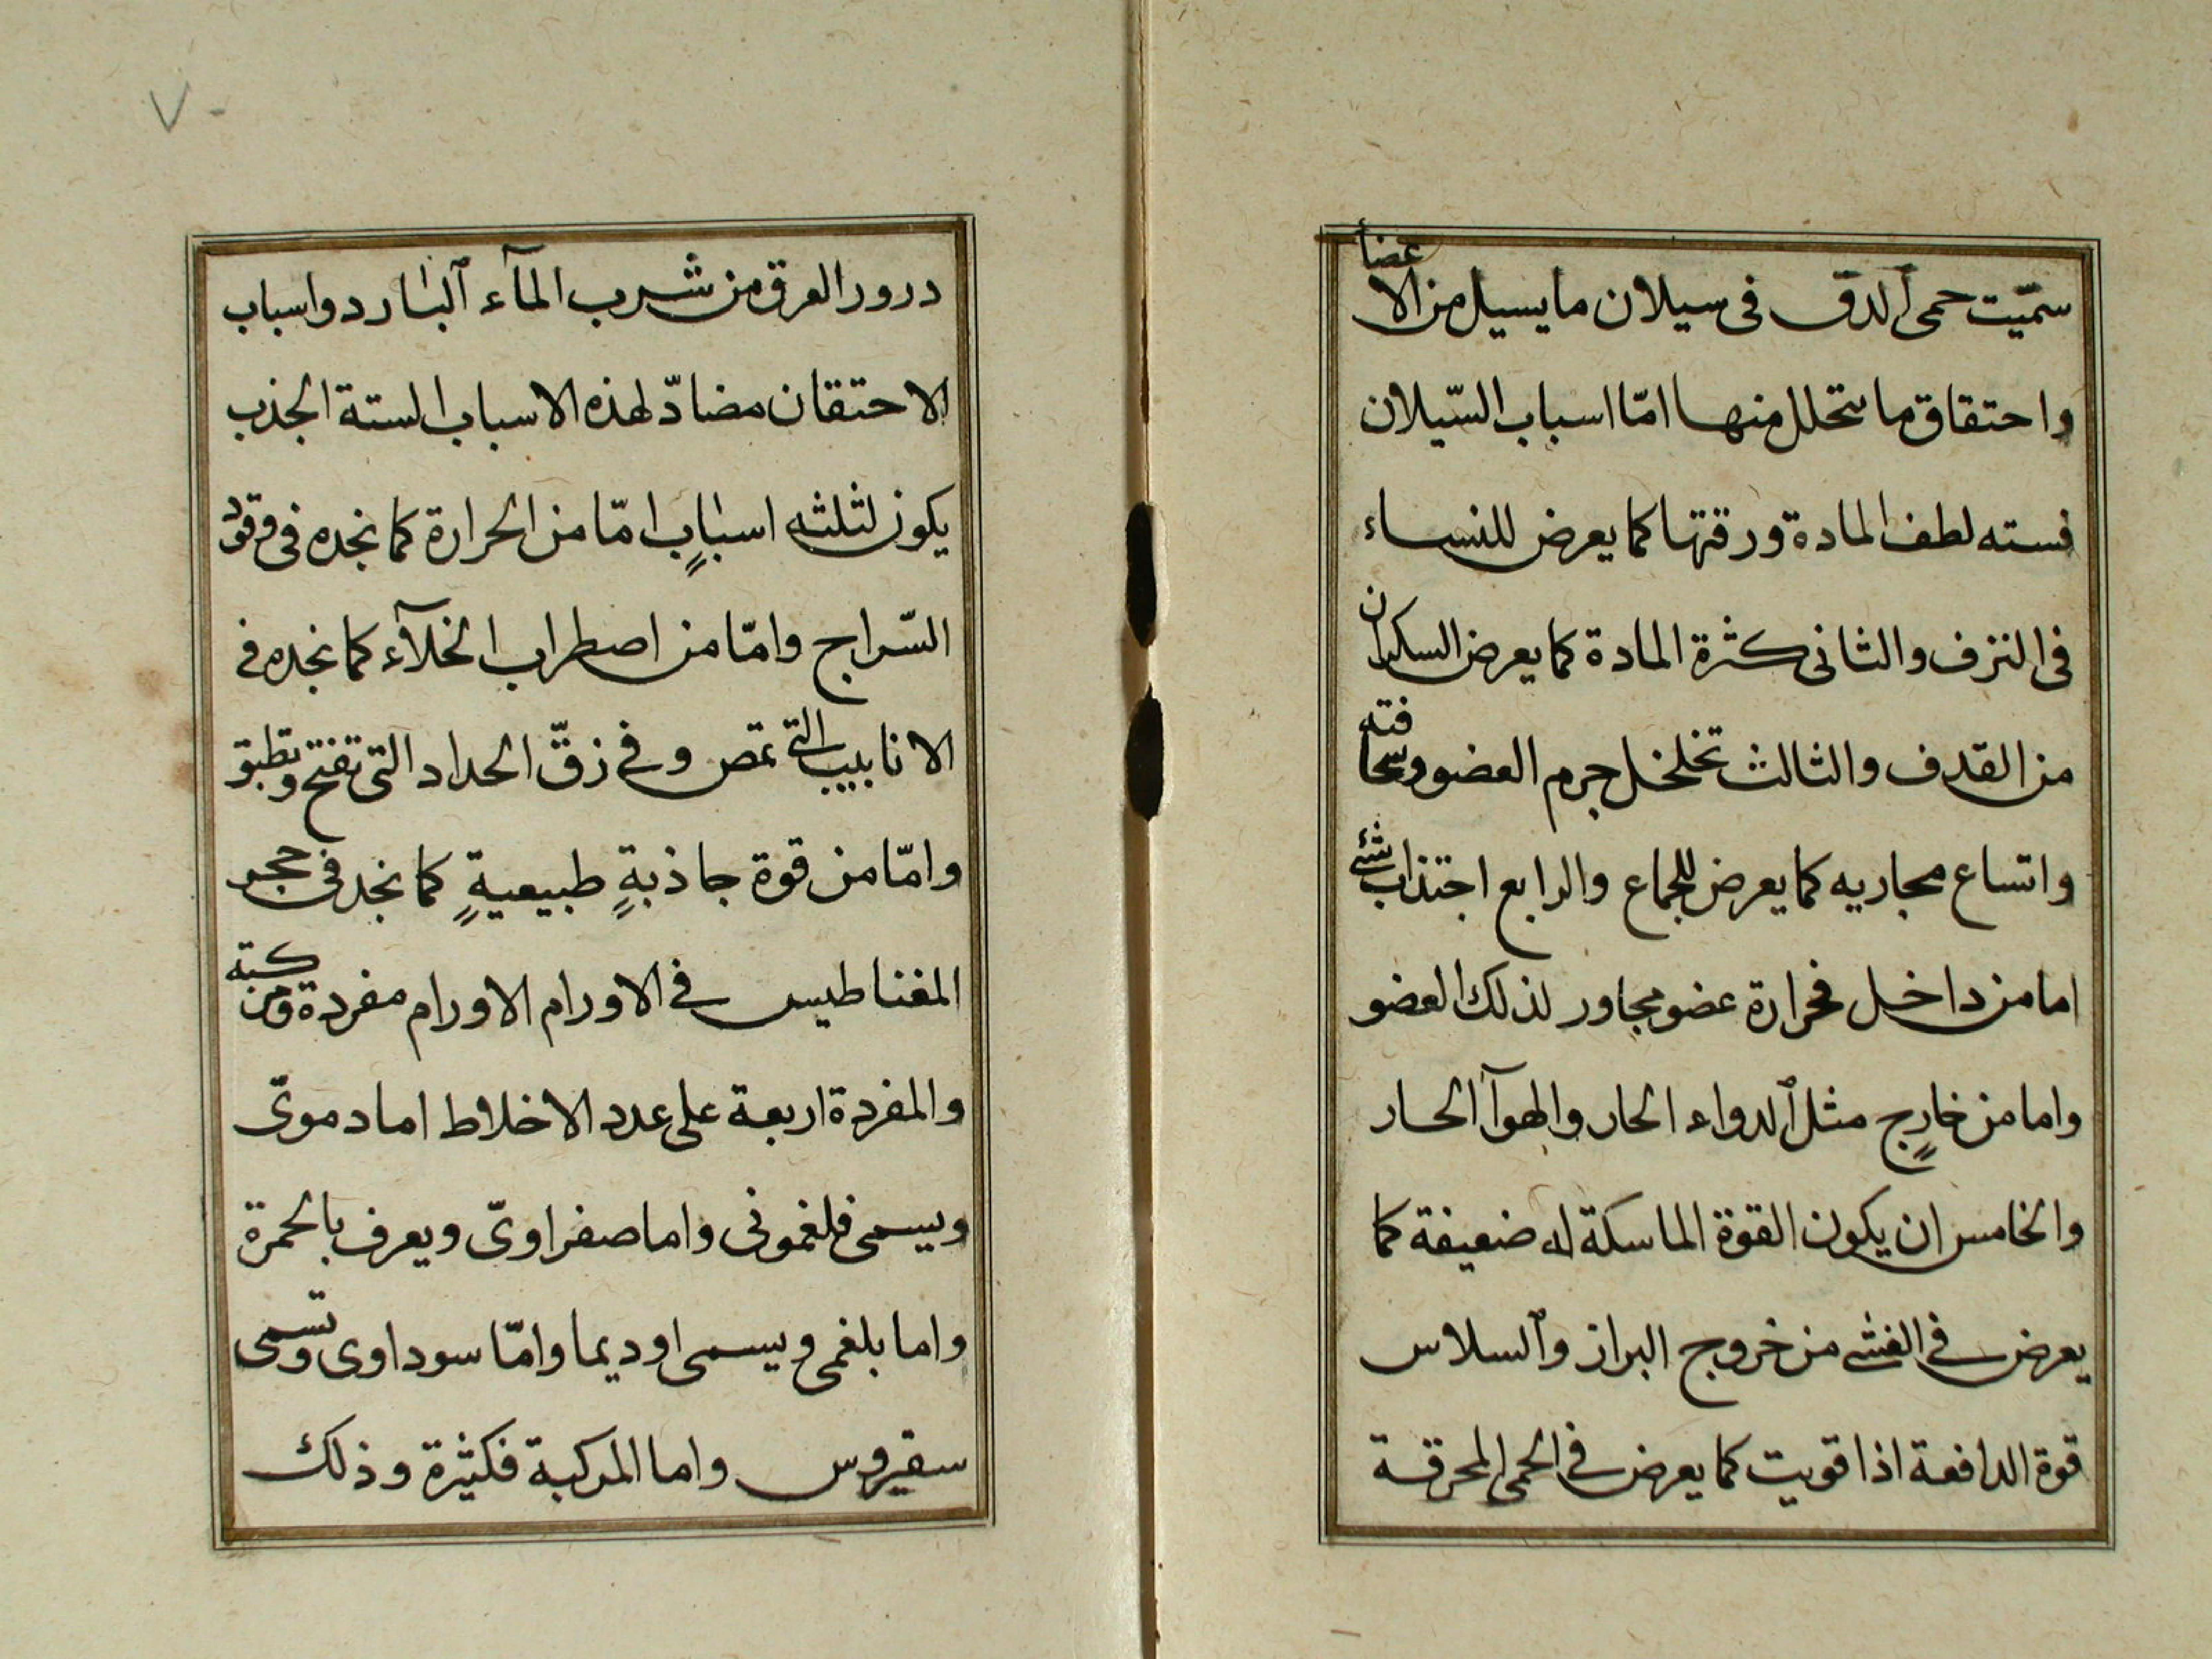 سمّيت حمى ٱلدقّ فى سيلان ما يسيل من الاعضاأ
واحتقاق ما تتحلل منها امّا اسباب السّيلان
فسته لطف المادة ورقتها كما يعرض للنساء
فى النزف والثانى كثرة المادة كما يعرض السكران
من القذف والثالث تخلخل جرم العضو وسخافته
واتساع مجاريه كما يعرض للجماع والرابع اجتذاب شئ
اما من داخل فحرارة عضو مجاور لذلك العضو
واما من خارجٍ مثل ٱلدواء الحار والهوآ الحار
والخامس ان يكون القوة الماسكة له ضعيفة كما
يعرض فى الغشى من خروج البراز وٱلسلاس
قوة الدافعة اذا قويت كما يعرض فى الحمى المحرقة
٧٠
درور العرق من شرب المآء ٱلبارد واسباب
الاحتقان مضادّ لهذه الاسباب الستة الجذب
يكون لثلثه اسبابٍ امّا من الحرارة كما نجده فى وقود
السّراج وامّا من اصطراب الخلآء كما نجده فى
الانابيب التى تمص وفى زقّ الحداد التى تفتح وتطبق
وامّا من قوة جاذبةٍ طبيعيةٍ كما نجد فى حجر
المغناطيس فى الاورام الاورام مفردة ومركبة
والمفردة اربعة على عدد الاخلاط اما دموىّ
ويسمى فلغمونى واما صفراوىّ ويعرف بالحمرة
واما بلغمى ويسمى اوديما وامّا سوداوى وتسمى
سقيروس واما المركبة فكثيرة وذلك